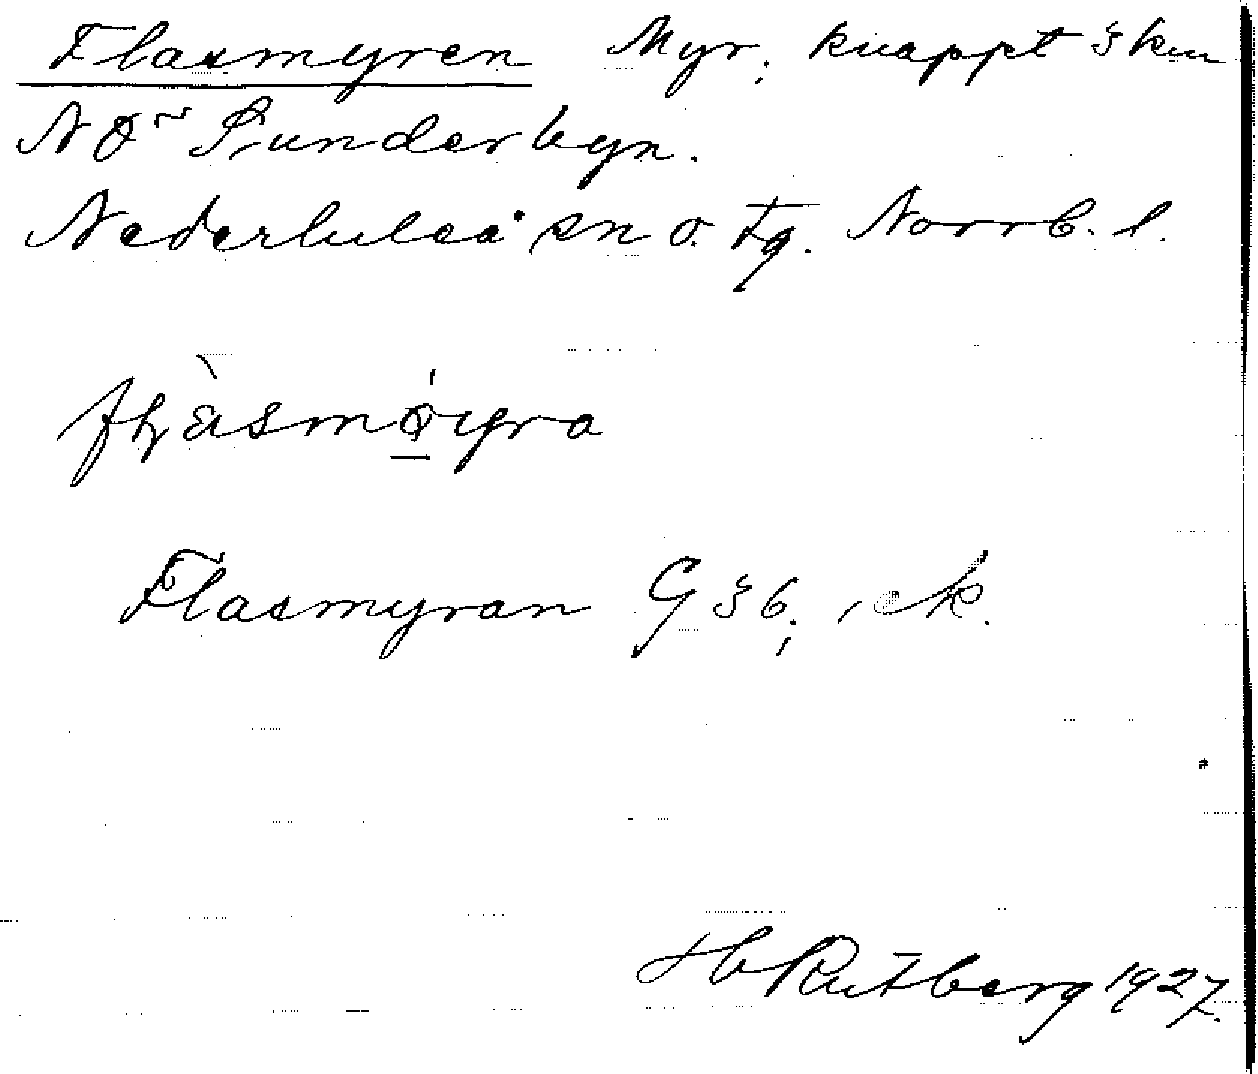 Flasmyren Myr, knappt 3 km
NO Sunderbyn.
Nederluleå sn o. tg. Norrb. l.
Flasmyran G 36, ek.
H Rutberg 1927.